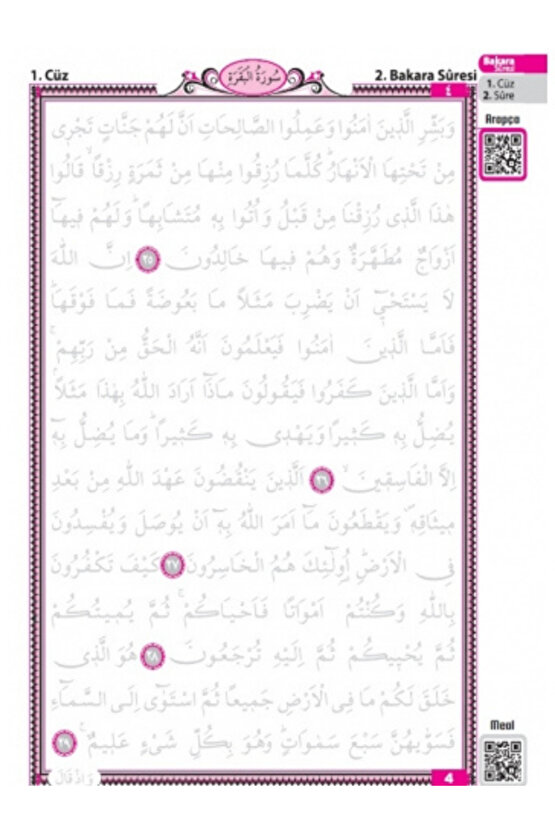 1. Cüz
سُورَةُ الْبَقَرَةِ
2. Bakara Sûresi
Bakara
Sûresi
1. Cüz
2. Sûre
Arapça
٤
وَبَشِّرِ الَّذٖينَ اٰمَنُوا وَعَمِلُوا الصَّالِحَاتِ اَنَّ لَهُمْ جَنَّاتٍ تَجْرٖى
مِنْ تَحْتِهَا الْاَنْهَارُؕ كُلَّمَا رُزِقُوا مِنْهَا مِنْ ثَمَرَةٍ رِزْقًاۙ قَالُوا
هٰذَا الَّذٖى رُزِقْنَا مِنْ قَبْلُ وَاُتُوا بِهٖ مُتَشَابِهًاؕ وَلَهُمْ فٖيهَٓا
اَزْوَاجٌ مُطَهَّرَةٌ وَهُمْ فٖيهَا خَالِدُونَ ﴿٢٥﴾ اِنَّ اللّٰهَ
لَا يَسْتَحْيٖٓ اَنْ يَضْرِبَ مَثَلًا مَا بَعُوضَةً فَمَا فَوْقَهَاؕ
فَاَمَّا الَّذٖينَ اٰمَنُوا فَيَعْلَمُونَ اَنَّهُ الْحَقُّ مِنْ رَبِّهِمْۚ
وَاَمَّا الَّذٖينَ كَفَرُوا فَيَقُولُونَ مَاذَٓا اَرَادَ اللّٰهُ بِهٰذَا مَثَلًاۘ
يُضِلُّ بِهٖ كَثٖيرًا وَيَهْدٖى بِهٖ كَثٖيرًاؕ وَمَا يُضِلُّ بِهٖٓ
اِلَّا الْفَاسِقٖينَۙ ﴿٢٦﴾ اَلَّذٖينَ يَنْقُضُونَ عَهْدَ اللّٰهِ مِنْ بَعْدِ
مٖيثَاقِهٖࣕ وَيَقْطَعُونَ مَٓا اَمَرَ اللّٰهُ بِهٖٓ اَنْ يُوصَلَ وَيُفْسِدُونَ
فِى الْاَرْضِؕ اُولٰٓئِكَ هُمُ الْخَاسِرُونَ ﴿٢٧﴾ كَيْفَ تَكْفُرُونَ
بِاللّٰهِ وَكُنْتُمْ اَمْوَاتًا فَاَحْيَاكُمْۚ ثُمَّ يُمٖيتُكُمْ
ثُمَّ يُحْيٖيكُمْ ثُمَّ اِلَيْهِ تُرْجَعُونَ ﴿٢٨﴾ هُوَ الَّذٖى
خَلَقَ لَكُمْ مَا فِى الْاَرْضِ جَمٖيعًا ثُمَّ اسْتَوٰٓى اِلَى السَّمَٓاءِ
فَسَوّٰيهُنَّ سَبْعَ سَمٰوَاتٍؕ وَهُوَ بِكُلِّ شَىْءٍ عَلٖيمٌࣖ ﴿٢٩﴾
Meal
وَاِذْ قَالَ
4